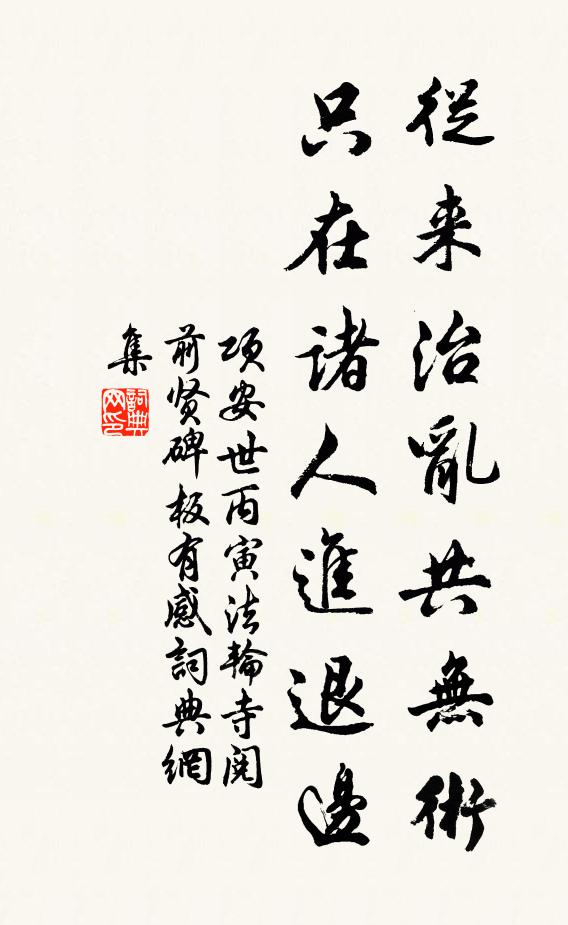 從来治亂共無術
只在諸人進退邊
項安世丙寅法輪寺閱
前贤碑板有感詞典網
集
詞典网印